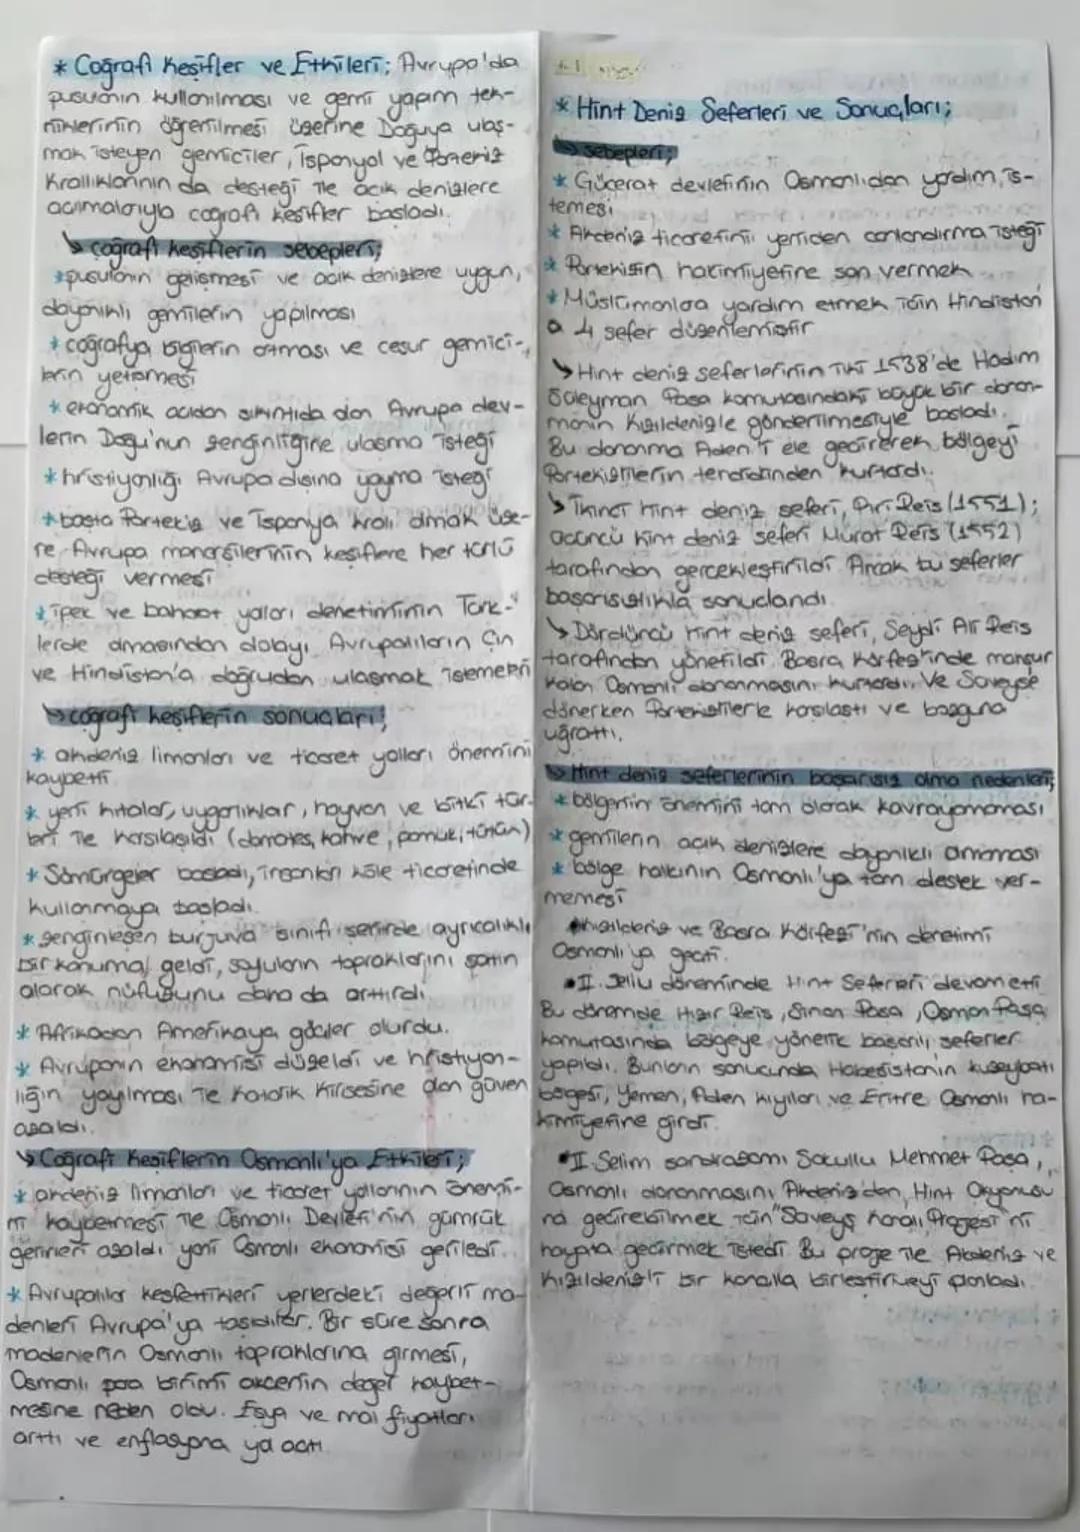 * Coğrafi Keşifler ve Etkileri; Avrupa'da
pusulanın kullanılması ve gemi yapım tek-
niklerinin öğrenilmesi üzerine Doğuya ulaş-
mak isteyen gemiciler, İspanyol ve Portekiz
Krallıklarının da desteği ile açık denizlere
açılmalarıyla coğrafi keşifler başladı.
↳ coğrafi keşiflerin sebepleri;
* pusulanın gelişmesi ve açık denizlere uygun,
dayanıklı gemilerin yapılması
* coğrafya bilgilerin artması ve cesur gemici-
lerin yetişmesi
* ekonomik açıdan sıkıntıda olan Avrupa dev-
lerin Doğu'nun zenginliğine ulaşma isteği
* hristiyanlığı Avrupa dışına yayma isteği
* başta Portekiz ve İspanya kralı olmak üze-
re Avrupa monarşilerinin keşiflere her türlü
desteği vermesi
* ipek ve baharat yolları denetiminin Türk-
lerde olmasından dolayı Avrupalıların Çin
ve Hindistan'a doğrudan ulaşmak istemeleri
↳ coğrafi keşiflerin sonuçları;
* akdeniz limanları ve ticaret yolları önemini
kaybetti
* yeni kıtalar, uygarlıklar, hayvan ve bitki tür-
leri ile karşılaşıldı (domates, kahve, pamuk, tütün)
* Sömürgeler başladı, insanları köle ticaretinde
kullanmaya başladı.
* zenginleşen burjuva sınıfı şehirde ayrıcalıklı
bir konuma geldi, soyluların topraklarını satın
alarak nüfuzunu daha da arttırdı.
* Afrikadan Amerikaya göçler olurdu.
* Avrupanın ekonomisi düzeldi ve hristiyan-
lığın yayılması ile Katolik Kilisesine olan güven
azaldı.
↳ Coğrafi Keşiflerin Osmanlı'ya Etkileri;
* akdeniz limanları ve ticaret yollarının önemi-
ni kaybetmesi ile Osmanlı Devleti'nin gümrük
gelirleri azaldı yani Osmanlı ekonomisi geriledi.
* Avrupalılar keşfettikleri yerlerdeki değerli ma-
denleri Avrupa'ya taşıdılar. Bir süre sonra
madenlerin Osmanlı topraklarına girmesi,
Osmanlı para birimi akçenin değer kaybet-
mesine neden oldu. Eşya ve mal fiyatları
arttı ve enflasyona yol açtı
* Hint Deniz Seferleri ve Sonuçları;
↳ sebepleri;
* Gücerat devletinin Osmanlıdan yardım is-
temesi
* Akdeniz ticaretini yeniden canlandırma isteği
* Portekizin hakimiyetine son vermek
* Müslümanlara yardım etmek için Hindistan
a 4 sefer düzenlemiştir
↳ Hint deniz seferlerinin ilki 1538'de Hadım
Süleyman Paşa komutasındaki büyük bir donan-
manın Kızıldenizle gönderilmesiyle başladı.
Bu donanma Aden'i ele geçirerek bölgeyi
Portekizlilerin tehdidinden kurtardı.
↳ İkinci hint deniz seferi, Piri Reis (1551);
üçüncü hint deniz seferi Murat Reis (1552)
tarafından gerçekleştirildi. Ancak bu seferler
başarısızlıkla sonuçlandı
↳ Dördüncü hint deniz seferi, Seydi Ali Reis
tarafından yönetildi. Basra Körfezinde mahsur
kalan Osmanlı donanmasını kurtardı. Ve Süveyşe
dönerken Portekizlilerle karşılaştı ve bozguna
uğrattı.
↳ Hint deniz seferlerinin başarısız olma nedenleri;
* bölgenin önemini tam olarak kavrayamaması
* gemilerin açık denizlere dayanıklı olmaması
* bölge halkının Osmanlı'ya tam destek ver-
memesi
• kızıldeniz ve Basra Körfezi'nin denetimi
Osmanlı'ya geçti.
• II. Selim döneminde Hint Seferleri devam etti
Bu dönemde Hızır Reis, Sinan Paşa, Osman Paşa
komutasında bölgeye yönelik başarılı seferler
yapıldı. Bunların sonucunda Habeşistanın kuzeybatı
bölgesi, Yemen, Aden kıyıları ve Eritre Osmanlı ha-
kimiyetine girdi.
• II. Selim sandrazamı Sokullu Mehmet Paşa,
Osmanlı donanmasını Akdeniz'den, Hint Okyanusu
na geçirebilmek için "Süveyş Kanalı Projesi'ni
hayata geçirmek istedi Bu proje ile Akdeniz ve
Kızıldeniz'i bir kanalla birleştirmeyi planladı.